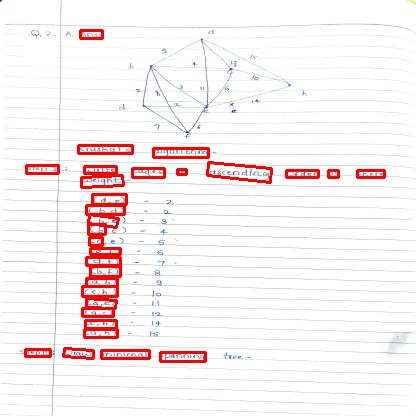 Q. 2. A.
d
9
15
b
4
13
c
10
8
3
11
6
h
2
14
d
e
7
6
f
Kruskal's algorithm -
Step 1: Write edges in ascending order of their
weight
(d, e) - 2
(b, d) - 2
(b, e) - 3
(b, c) - 4
(c, e) - 5
- 6
(d, f) - 7
(b, f) - 8
(a, b) - 9
(c, h) - 10
(a, e) - 11
(a, c) - 12
(e, h) - 14
(a, h) - 15
minimal spanning tree -